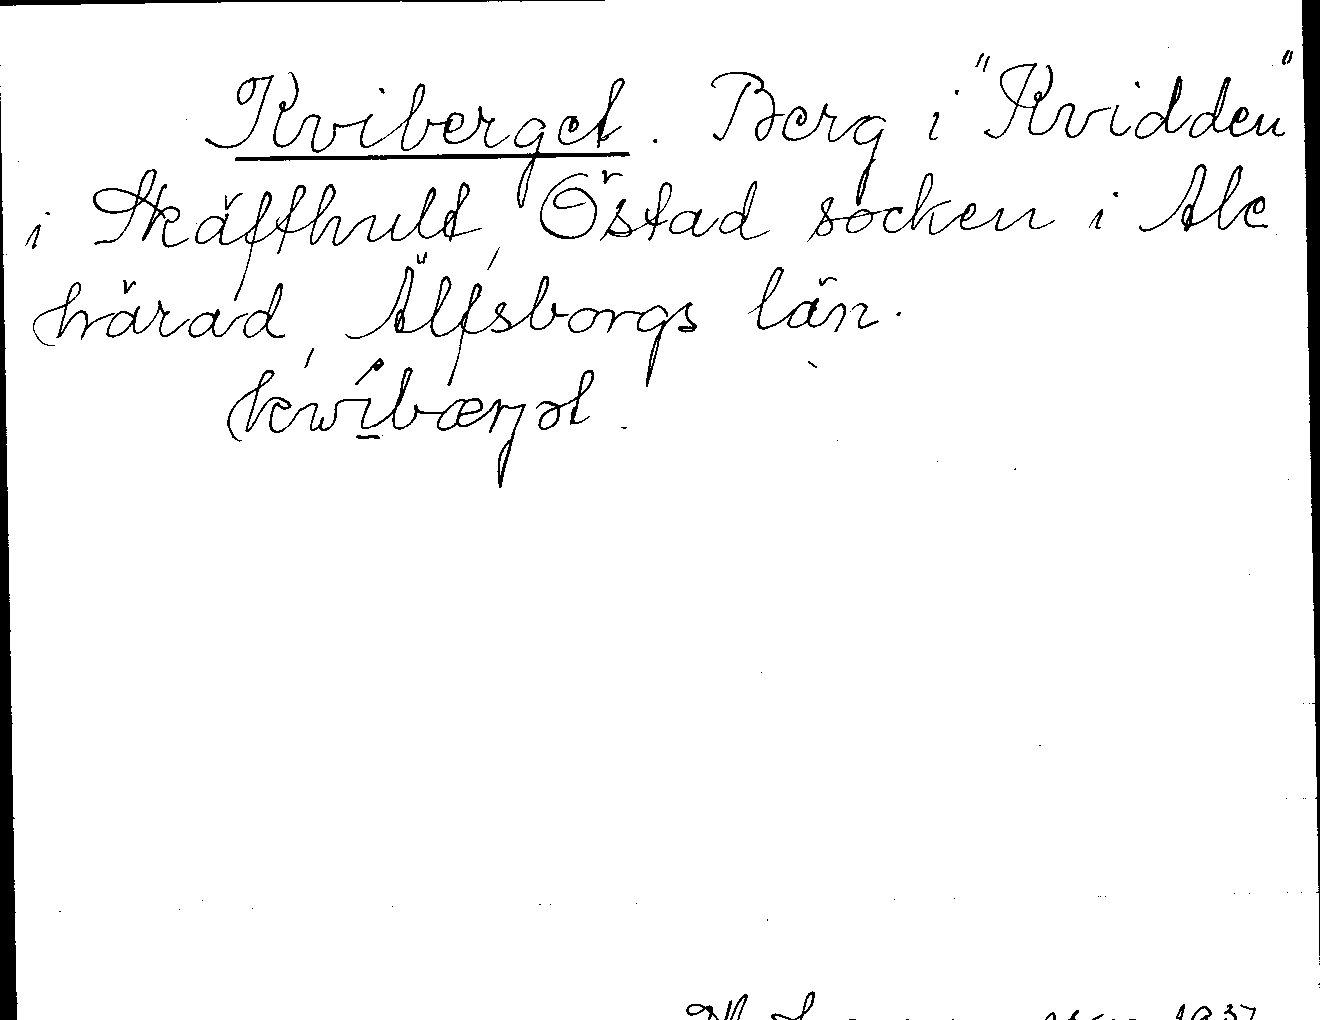 Kviberget. Berg i "Kvidden"
i Skäfthult, Östad socken i Ale
härad, Älfsborgs län.
kwí̲bærjət.
1937